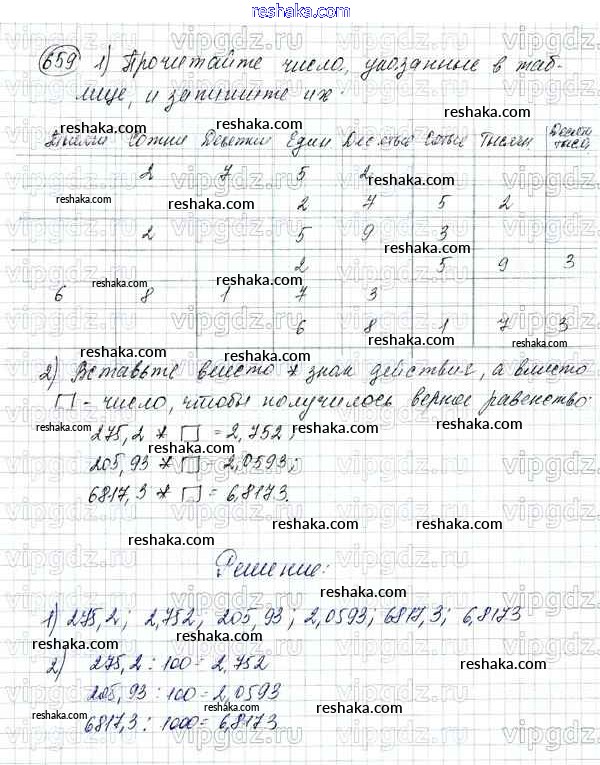 reshaka.com
659 1) Прочитайте числа, указанные в таб-
лице, и запишите их.
Тысячи Сотни Десятки Един Десятые Сотые Тысячн Десят тысяч
2 7 5 2
2 7 5 2
2 5 9 3
2 5 9 3
6 8 1 7 3
6 8 1 7 3
2) Вставьте вместо * знак действия, а вместо
□ - число, чтобы получилось верное равенство:
275,2 * □ = 2,752;
205,93 * □ = 2,0593;
6817,3 * □ = 6,8173.
Решение:
1) 275,2; 2,752, 205,93; 2,0593; 6817,3; 6,8173
2) 275,2 : 100 = 2,752
205,93 : 100 = 2,0593
6817,3 : 1000 = 6,8173